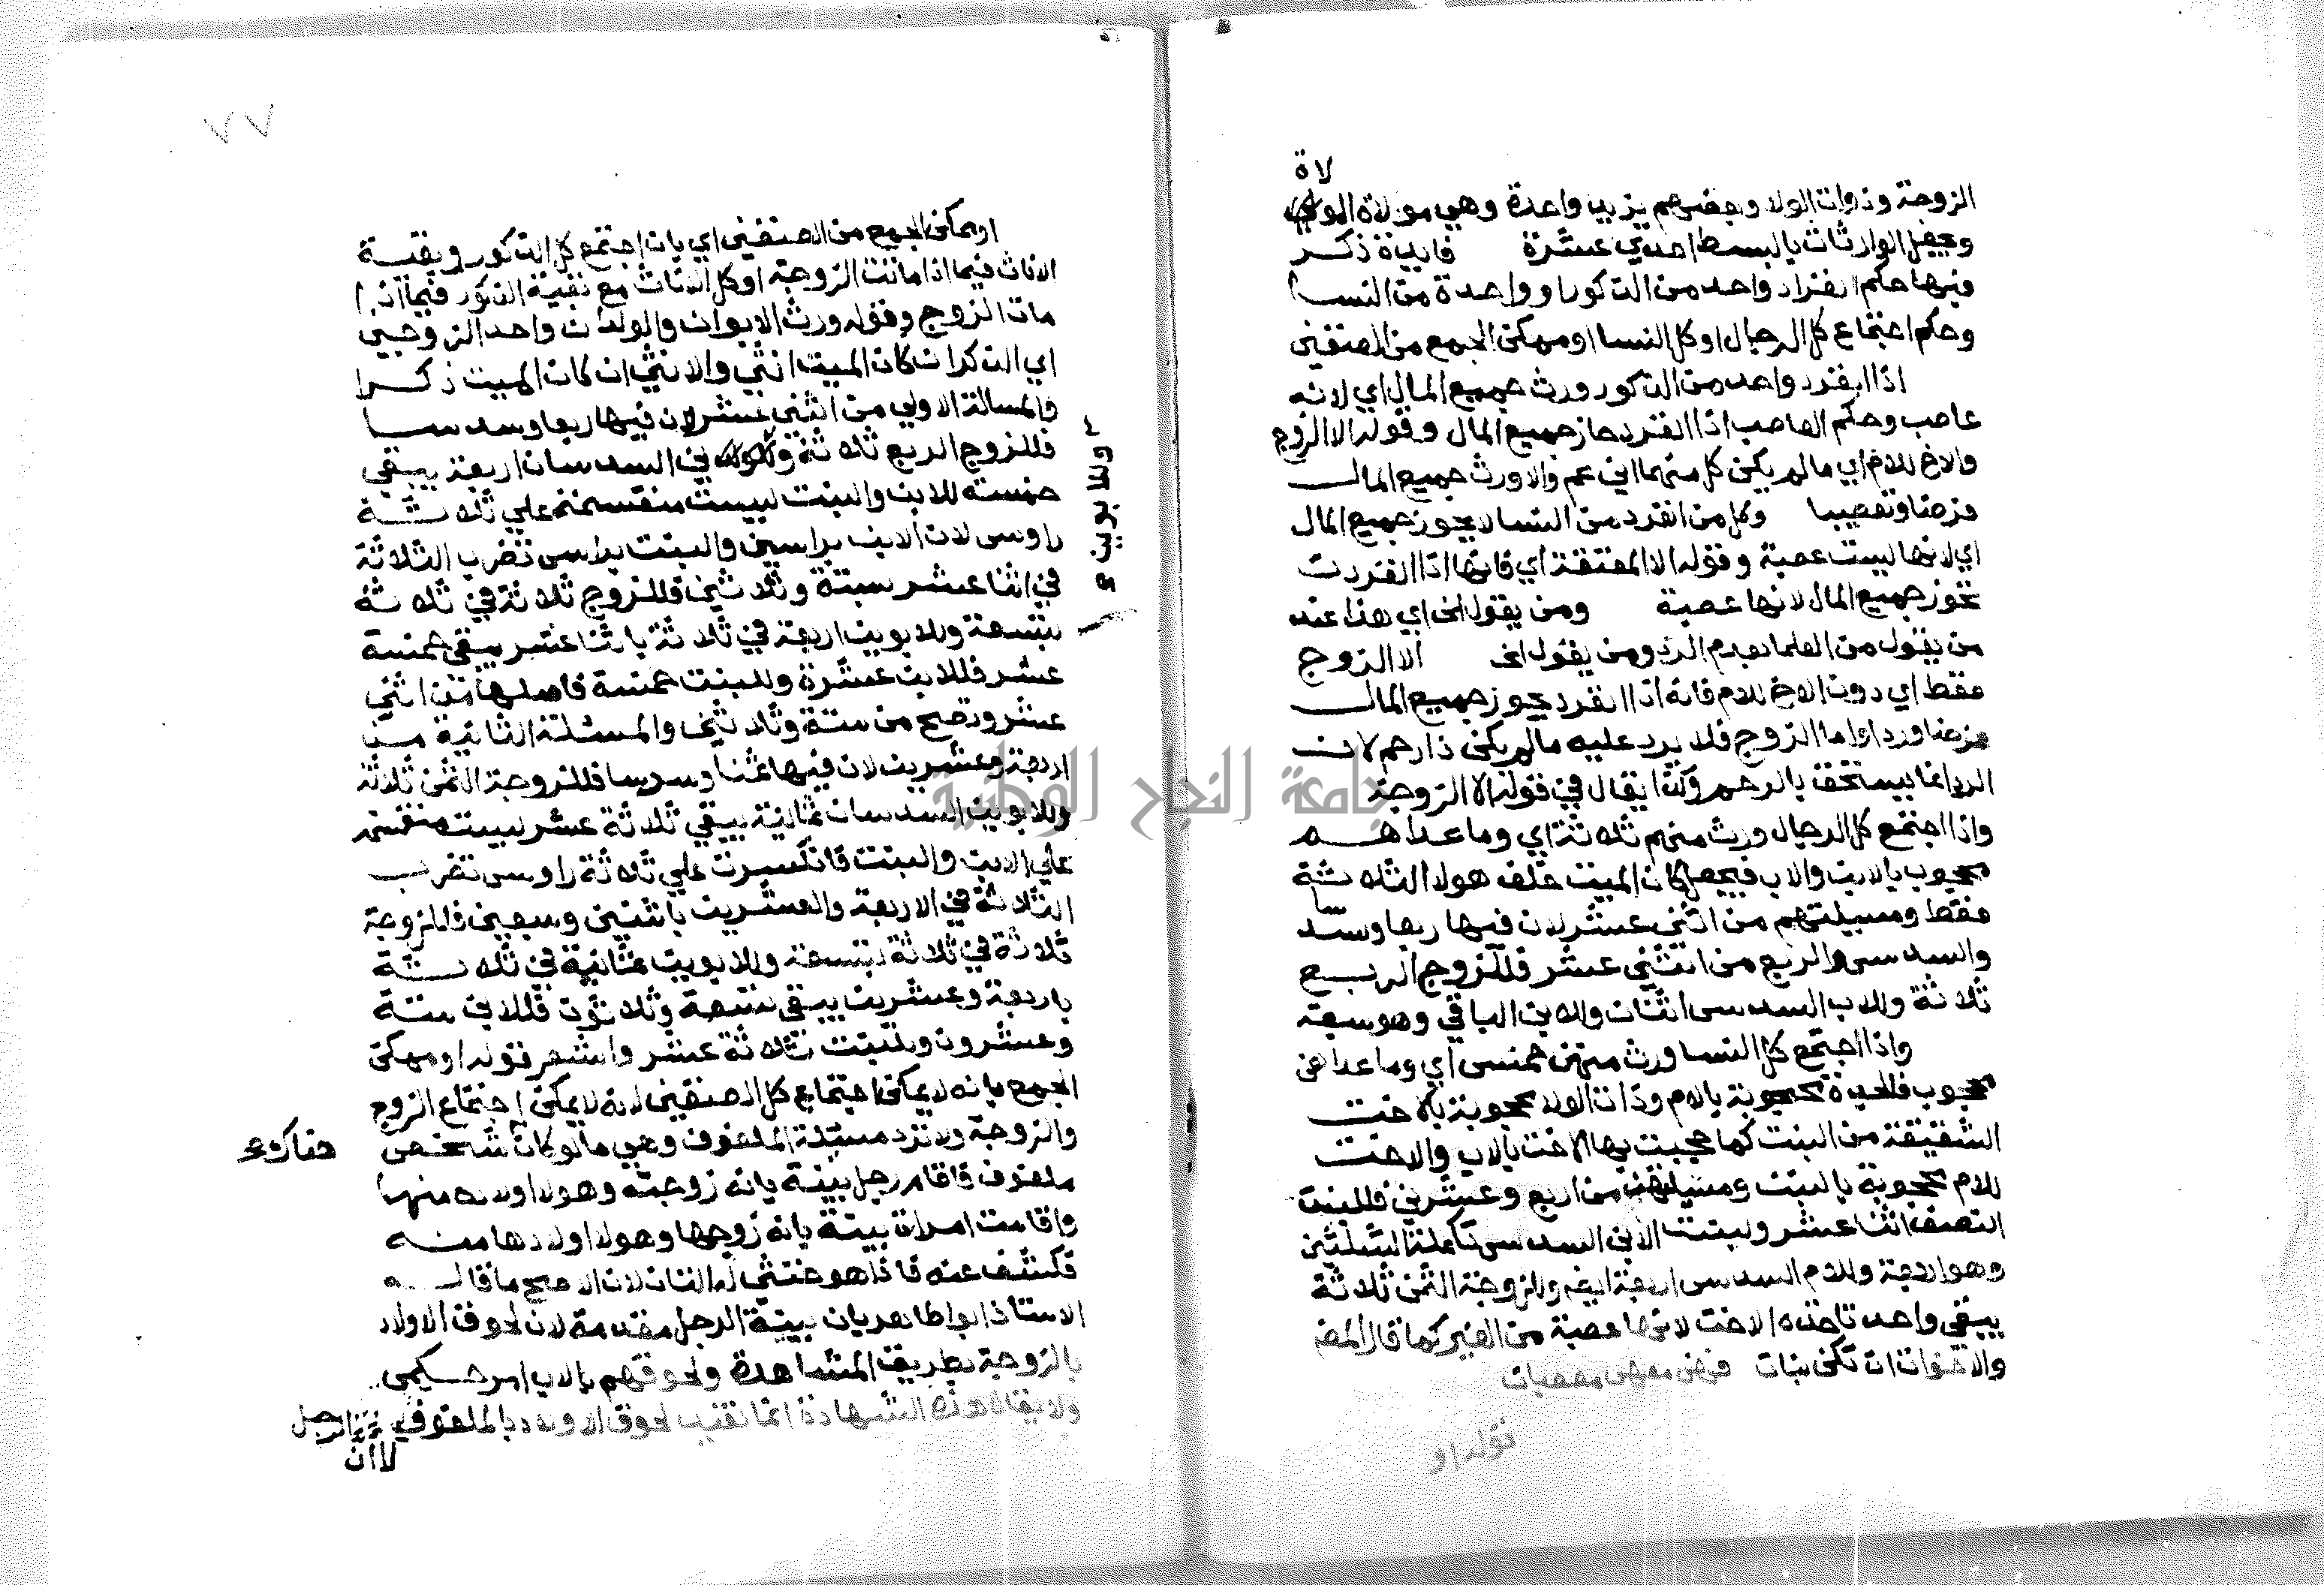 لاة
الزوجة وذوات الولا وبعضهم يزيد واحدة وهي مولاة المولي
ويجعل الوارثات بالبسط احدي عشرة فايدة ذكر
فيها حكم انفراد واحد من الذكور او واحدة من النسا
وحكم اجتماع كل الرجال او كل النسا او ممكن الجمع من الصنفين
اذا انفرد واحد من الذكور ورث جميع المال اي لانه
عاصب وحكم العاصب اذا انفرد حاز جميع المال وقوله الا الزوج
والاخ للام اي ما لم يكن كل منهما ابن عم والا ورث جميع المال
فرضا وتعصيبا وكل من انفرد من النسا لا يحوز جميع المال
اي لانها ليست عصبة وقوله الا المعتقة اي فانها اذا انفردت
تحوز جميع المال لانها عصبة ومن يقول الخ اي هذا عند
من يقول من العلما بعدم الرد ومن يقول الخ الا الزوج
فقط اي دون الاخ للام فانه اذا انفرد يحوز جميع المال
فرضا وردا واما الزوج فلا يرد عليه ما لم يكن ذا رحم لان
الرد انما يستحق بالرحم وكذا يقال في قوله الا الزوجة
واذا اجتمع كل الرجال ورث منهم ثلاثة اي وما عداهم
محجوب بالابن والاب فيجعل كان الميت خلف هولا الثلاثة
فقط ومسيلتهم من اثني عشر لان فيها ربعا وسدسا
والسدس والربع من اثني عشر فللزوج الربع
ثلاثة وللاب السدس اثنان وللابن الباقي وهو سبعة
واذا اجتمع كل النسا ورث منهن خمس اي وما عداهن
محجوب فالجدة محجوبة بالام وذات الولا محجوبة بالاخت
الشقيقة من البنت كما حجبت بها الاخت بالاب والاخت
للام محجوبة بالبنت ومسيلتهن من اربع وعشرين فللبنت
النصف اثنا عشر ولبنت الابن السدس تكملة الثلثين
وهو اربعة وللام السدس اربعة ايضا وللزوجة الثمن ثلاثة
يبقي واحد تاخذه الاخت لانها عصبة من الغير كما قال المصنف
والاخوات ان تكن بنات فهن معهن معصبات
قوله او
٧٧
او ممكن الجمع من الصنفين اي بان اجتمع كل الذكور وبقية
الاناث فيما اذا ماتت الزوجة او كل الاناث مع بقية الذكور فيما اذا
مات الزوج وقوله ورث الابوان والولدان واحد الزوجين
اي الذكر ان كان الميت انثي والانثي ان كان الميت ذكرا
فالمسالة الاولي من اثني عشر لان فيها ربعا وسدسا
فللزوج الربع ثلاثة في السدسان اربعة يبقي
خمسة للابن والبنت ليست منقسمة علي ثلاثة
راوس لان الابن براسين والبنت براس تضرب الثلاثة
في اثنا عشر بستة وثلاثين فللزوج ثلاثة في ثلاثة
بتسعة وللابوين اربعة في ثلاثة باثنا عشر يبقي خمسة
عشر فللابن عشرة وللبنت خمسة فاصلها من اثني
عشر وتصح من ستة وثلاثين والمسئلة الثانية من
اربعة وعشرين لان فيها ثمنا وسدسا فللزوجة الثمن ثلاثة
وللابوين السدسان ثمانية يبقي ثلاثة عشر ليست منقسمة
علي الابن والبنت فانكسرت علي ثلاثة راوس تضرب
الثلاثة في الاربعة والعشرين باثنين وسبعين فللزوجة
ثلاثة في ثلاثة بتسعة وللابوين ثمانية في ثلاثة
باربعة وعشرين يبقي تسعة وثلاثون فللابن ستة
وعشرون وللبنت ثلاثة عشر واشعر قوله او ممكن
الجمع بانه لا يمكن اجتماع كل الصنفين لانه لا يمكن اجتماع الزوج
والزوجة ولا ترد مسئلة الملفوف وهي ما لو كان شخص
ملفوف فاقام رجل بينة بانه زوجته وهولا اولاده منها
واقامت امراة بينة بانه زوجها وهولا اولادها منه
فكشف عنه فاذا هو خنثي له التان لان الاصح ما قاله
الاستاذ ابو اطاهر بان بينة الرجل مقدمة لان لحوق الاولاد
بالزوجة بطريق المشاهدة ولحوقهم بالاب امر حكمي
ولا يقال هذه الشهادة انما تفيد لحوق الاولاد بالملفوف الرجل
لا ان
وللابوين